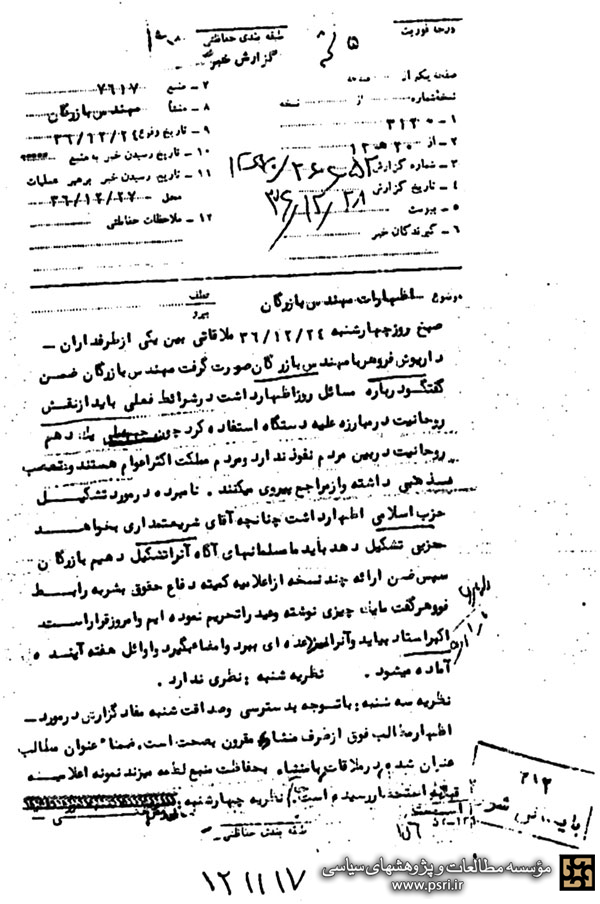 درجه فوریت
طبقه بندی حفاظتی
گزارش خبر
صفحه یکم از صفحه
نسخه شماره از نسخه
۱ ـ ۳۱۲۰
۲ ـ از ۲۰ هـ ۱۲
۳ ـ شماره گزارش
۴ ـ تاریخ گزارش ۳۶/۱۲/۲۸
۵ ـ پیوست
۶ ـ گیرندگان خبر
۷ ـ منبع ۷۶۱۷
۸ ـ منشاء مهندس بازرگان
۹ ـ تاریخ وقوع ۳۶/۱۲/۲۴
۱۰ ـ تاریخ رسیدن خبر به منبع
۱۱ ـ تاریخ رسیدن خبر برهبر عملیات
محل ۳۶/۱۲/۲۷
۱۲ ـ ملاحظات حفاظتی
موضوع اظهارات مهندس بازرگان
عطف
پیرو
صبح روز چهارشنبه ۳۶/۱۲/۲۴ ملاقاتی بین یکی از طرفداران ـ
داریوش فروهر با مهندس بازرگان صورت گرفت مهندس بازرگان ضمن
گفتگو درباره مسائل روز اظهار داشت در شرائط فعلی باید از نقش
روحانیت در مبارزه علیه دستگاه استفاده کرد چون
روحانیت در بین مردم نفوذ ندارد و مردم مملکت اکثرا عوام هستند و تعصب
مذهبی داشته و از مراجع پیروی میکنند . نامبرده در مورد تشکیل
حزب اسلامی اظهار داشت چنانچه آقای شریعتمداری بخواهد
حزبی تشکیل دهد باید ما مسلمانهای آگاه آنرا تشکیل دهیم بازرگان
سپس ضمن ارائه چند نسخه از اعلامیه کمیته دفاع حقوق بشر به رابط
فروهر گفت ما یک چیزی نوشته و عید را تحریم نموده ایم و امروز قرار است
اکبر استاد بیاید و آنرا نزد عده ای ببرد و امضاء بگیرد و اوائل هفته آینده
آماده میشود . نظریه شنبه : نظری ندارد .
نظریه سه شنبه : با توجه بدسترسی و صداقت شنبه مفاد گزارش در مورد ـ
اظهار مطالب فوق از طرف منشاء مقرون بصحت است . ضمنا عنوان مطالب
عنوان شده در ملاقات با منشاء بحفاظت منبع لطمه میزند نمونه اعلامیه
قبلا به استحضار رسیده است . نظریه چهارشنبه :
طبقه بندی حفاظتی
۳۱۲
۱۲۱۱۱۷
مؤسسه مطالعات و پژوهشهای سیاسی
www.psri.ir